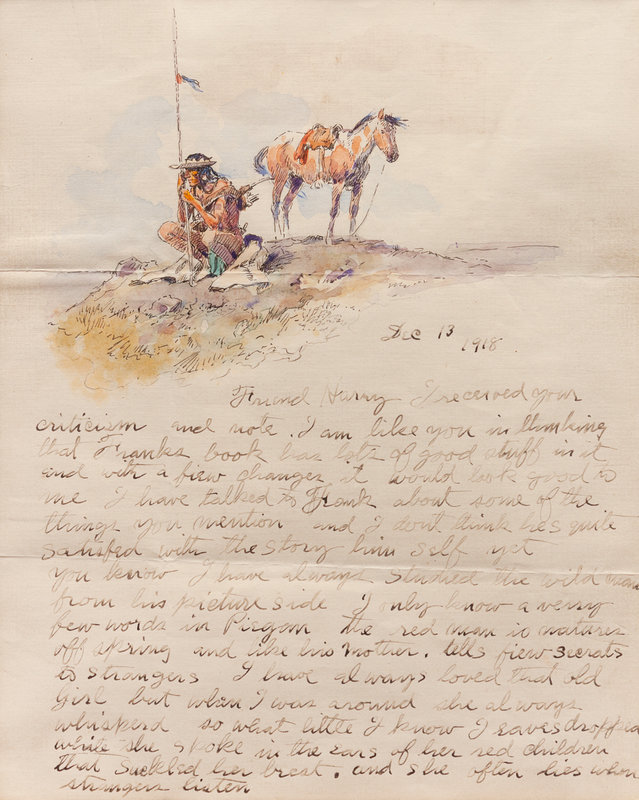 Dec 13
1918.
Friend Harry I received your
criticism and note. I am like you in thinking
that Franks book has lots of good stuff in it
and with a fiew changes it would look good to
me I have talked to Frank about some of the
things you mention and I dont think hes quite
satisfed with the story him self yet
you know I have always studied the wild man
from his picture side I only know a verry
few words in Piegan the red man is natures
off spring and like his Mother. tells fiew secrats
to strangers I have always loved that old
Girl but when I was around she always
whisperd so what little I know I eavesdropped
while she spoke in the ears of her red children
that suckled her brest. and she often lies when
strangers listen